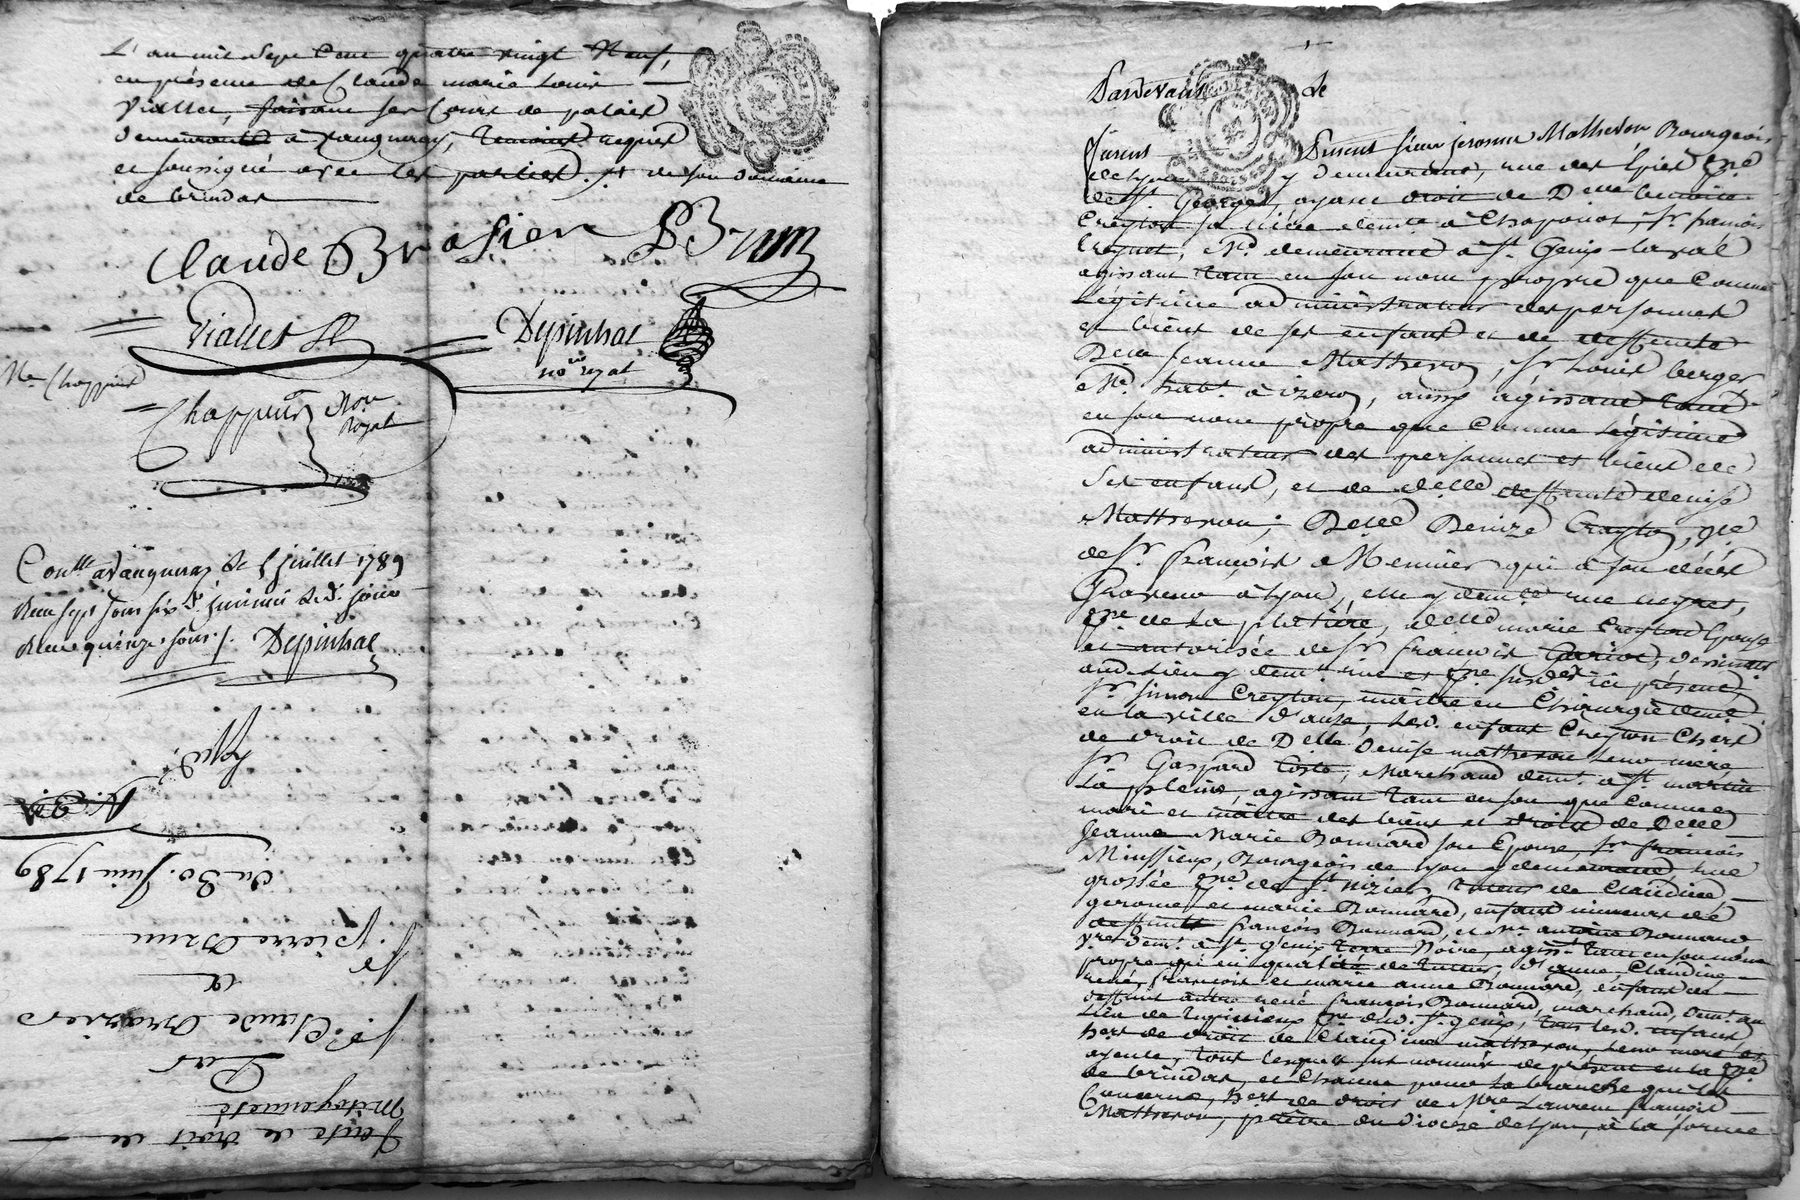 L'an mil Sept Cent quatre vingt Neuf,
en présence de Claude marie Louis
Viallet, faisant ses Cours de palais
demeurant à Vaugneray, temoins requis
et soussigné avec les parties. de son domaine
de brindas
Claude Brasier PBrun
Viallet
Depinhac
no re royal
Me Chappuis
Chappuis Nore
Royal
Conllé a Vaugneray le 5 juillet 1789
Reçu sept sous six d.
Reçu quinze sous. Depinhac
Expé
du 30. Juin 1789
Sr. pierre Brun
a
Sr. Claude Brasier
Par
Mitoyenneté
Vente de droit de
Pardevant le
furent présent sieur jerosme Matheron Bourgeois
de Lyon y demeurant, rue des
de St. George, ayant droit de Delle benoite
Creyton sa nièce demte à Chaponost, Sr. françois
Nd. demeurant à St. Genis-laval
agissant tant en son nom propre que Comme
Légitime administrateur des personnes
et biens de ses enfans et de deffunte
Delle Jeanne Matheron, Sr. Louis berger
Nd. habt. à izeron, aussy agissant tant
en son nom propre que Comme légitime
administrateur des personnes et biens de
Ses enfans, et de delle deffunte denise
Matheron; Delle Denize Creyton, vve
de Sr. françois Mennier qui a son décès
Graveur à Lyon, elle y demte rue
psse de La platière, delle marie Creyton Epouse
et autorisée de Sr. françois
audt. lieu y demt. rue et psse susdes ici présent
Sr. simon Creyton, maitre en Chirurgie demt.
en la ville d'anse, Lesd. enfans Creyton Chers
de droit de Delle Denise matheron leur mère
Sr. Gaspard Coste, Marchand demt. à St. martin
La plaine, agissant tant en son que Comme
mari et maitre des biens et droits de Delle
Jeanne Marie Bonnard son Epouse, Sr. françois
Missieux, Bourgeois de Lyon y demeurant, rue
grollée psse de St. nizier, tuteur de Claudine
gerome et marie Bonnard, enfans mineurs de
deffunt françois Bonnard, et Me antoine Bonnard
demt. à St. genis terre Noire, agist. tant en son nom
propre qu'en qualité de tuteur, d'anne, Claudine
rené, françois et marie anne Bonnard, enfans de
deffunt autre rené françois Bonnard, marchand, demt. au
Lieu de psse dud. St. genis, tous lesd. enfans
hers de droit de Claudine matheron, leur mere et
ayeule, tous lesquels sus nommés de présent en la psse
de brindas, et chacun pour la branche qui les
Concerne, hers de droit de Mre Laurent françois
Matheron, prêtre du diocèse de Lyon, à la forme